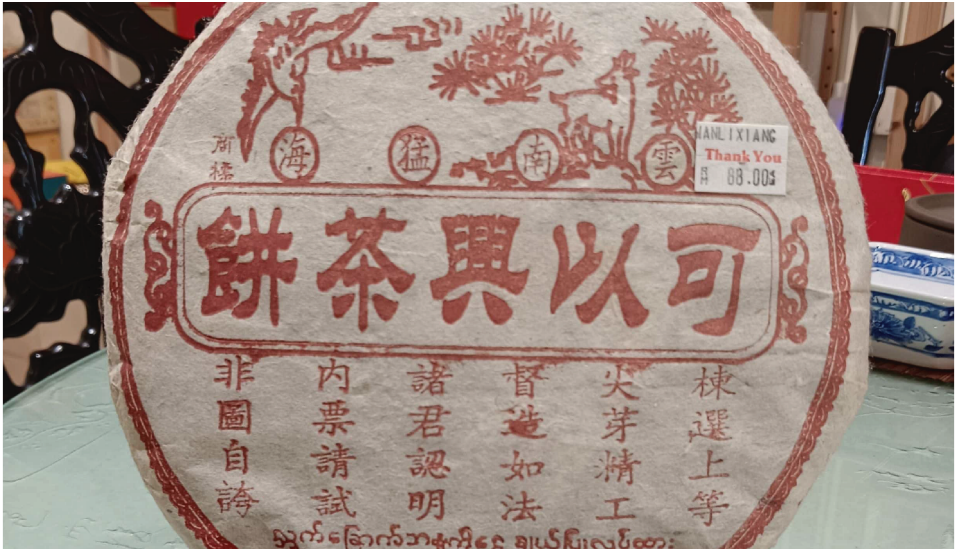 雲南猛海
商標
ANLIXIANG
Thank You
88.00
可以興茶餅
棟選上等
尖芽精工
督造如法
諸君認明
内票請試
非圖自誇